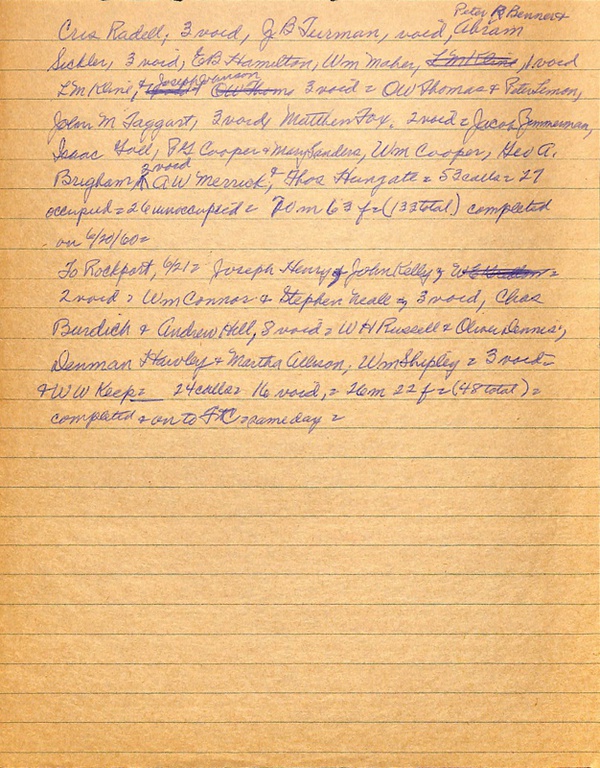 Peter R Bennert
Cris Radell, 3 void, J B Turman, void, Abram
Sickler, 3 void, E B Hamilton, Wm Maher, L M Kline, 1 void
Joseph Johnson
L M Kline, & O W Thoms 3 void = O W Thomas & Peter Leman,
John M Taggart, 3 void, Matthew Fox. 2 void = Jacob Zimmerman,
Isaac P G Cooper & Mary Sanders, Wm Cooper, Geo A.
2 void
Brigham, A W Merrick, & Thos Hungate = 53 calls = 27
occupied = 26 unoccupied = 70 m 63 f = (133 total) completed
on 6/20/60 =
To Rockport, 6/21 = Joseph Henry, John Kelly, =
2 void = Wm Connor & Stephen Neall = 3 void, Chas
Burdich & Andrew Hill, 8 void = W H Russell & Oliver Dennis,
Denman Hawley & Martha Allison, Wm Shipley = 3 void =
& W W Keep = 24 calls = 16 void, = 26 m 22 f = (48 total) =
completed & on to = same day =